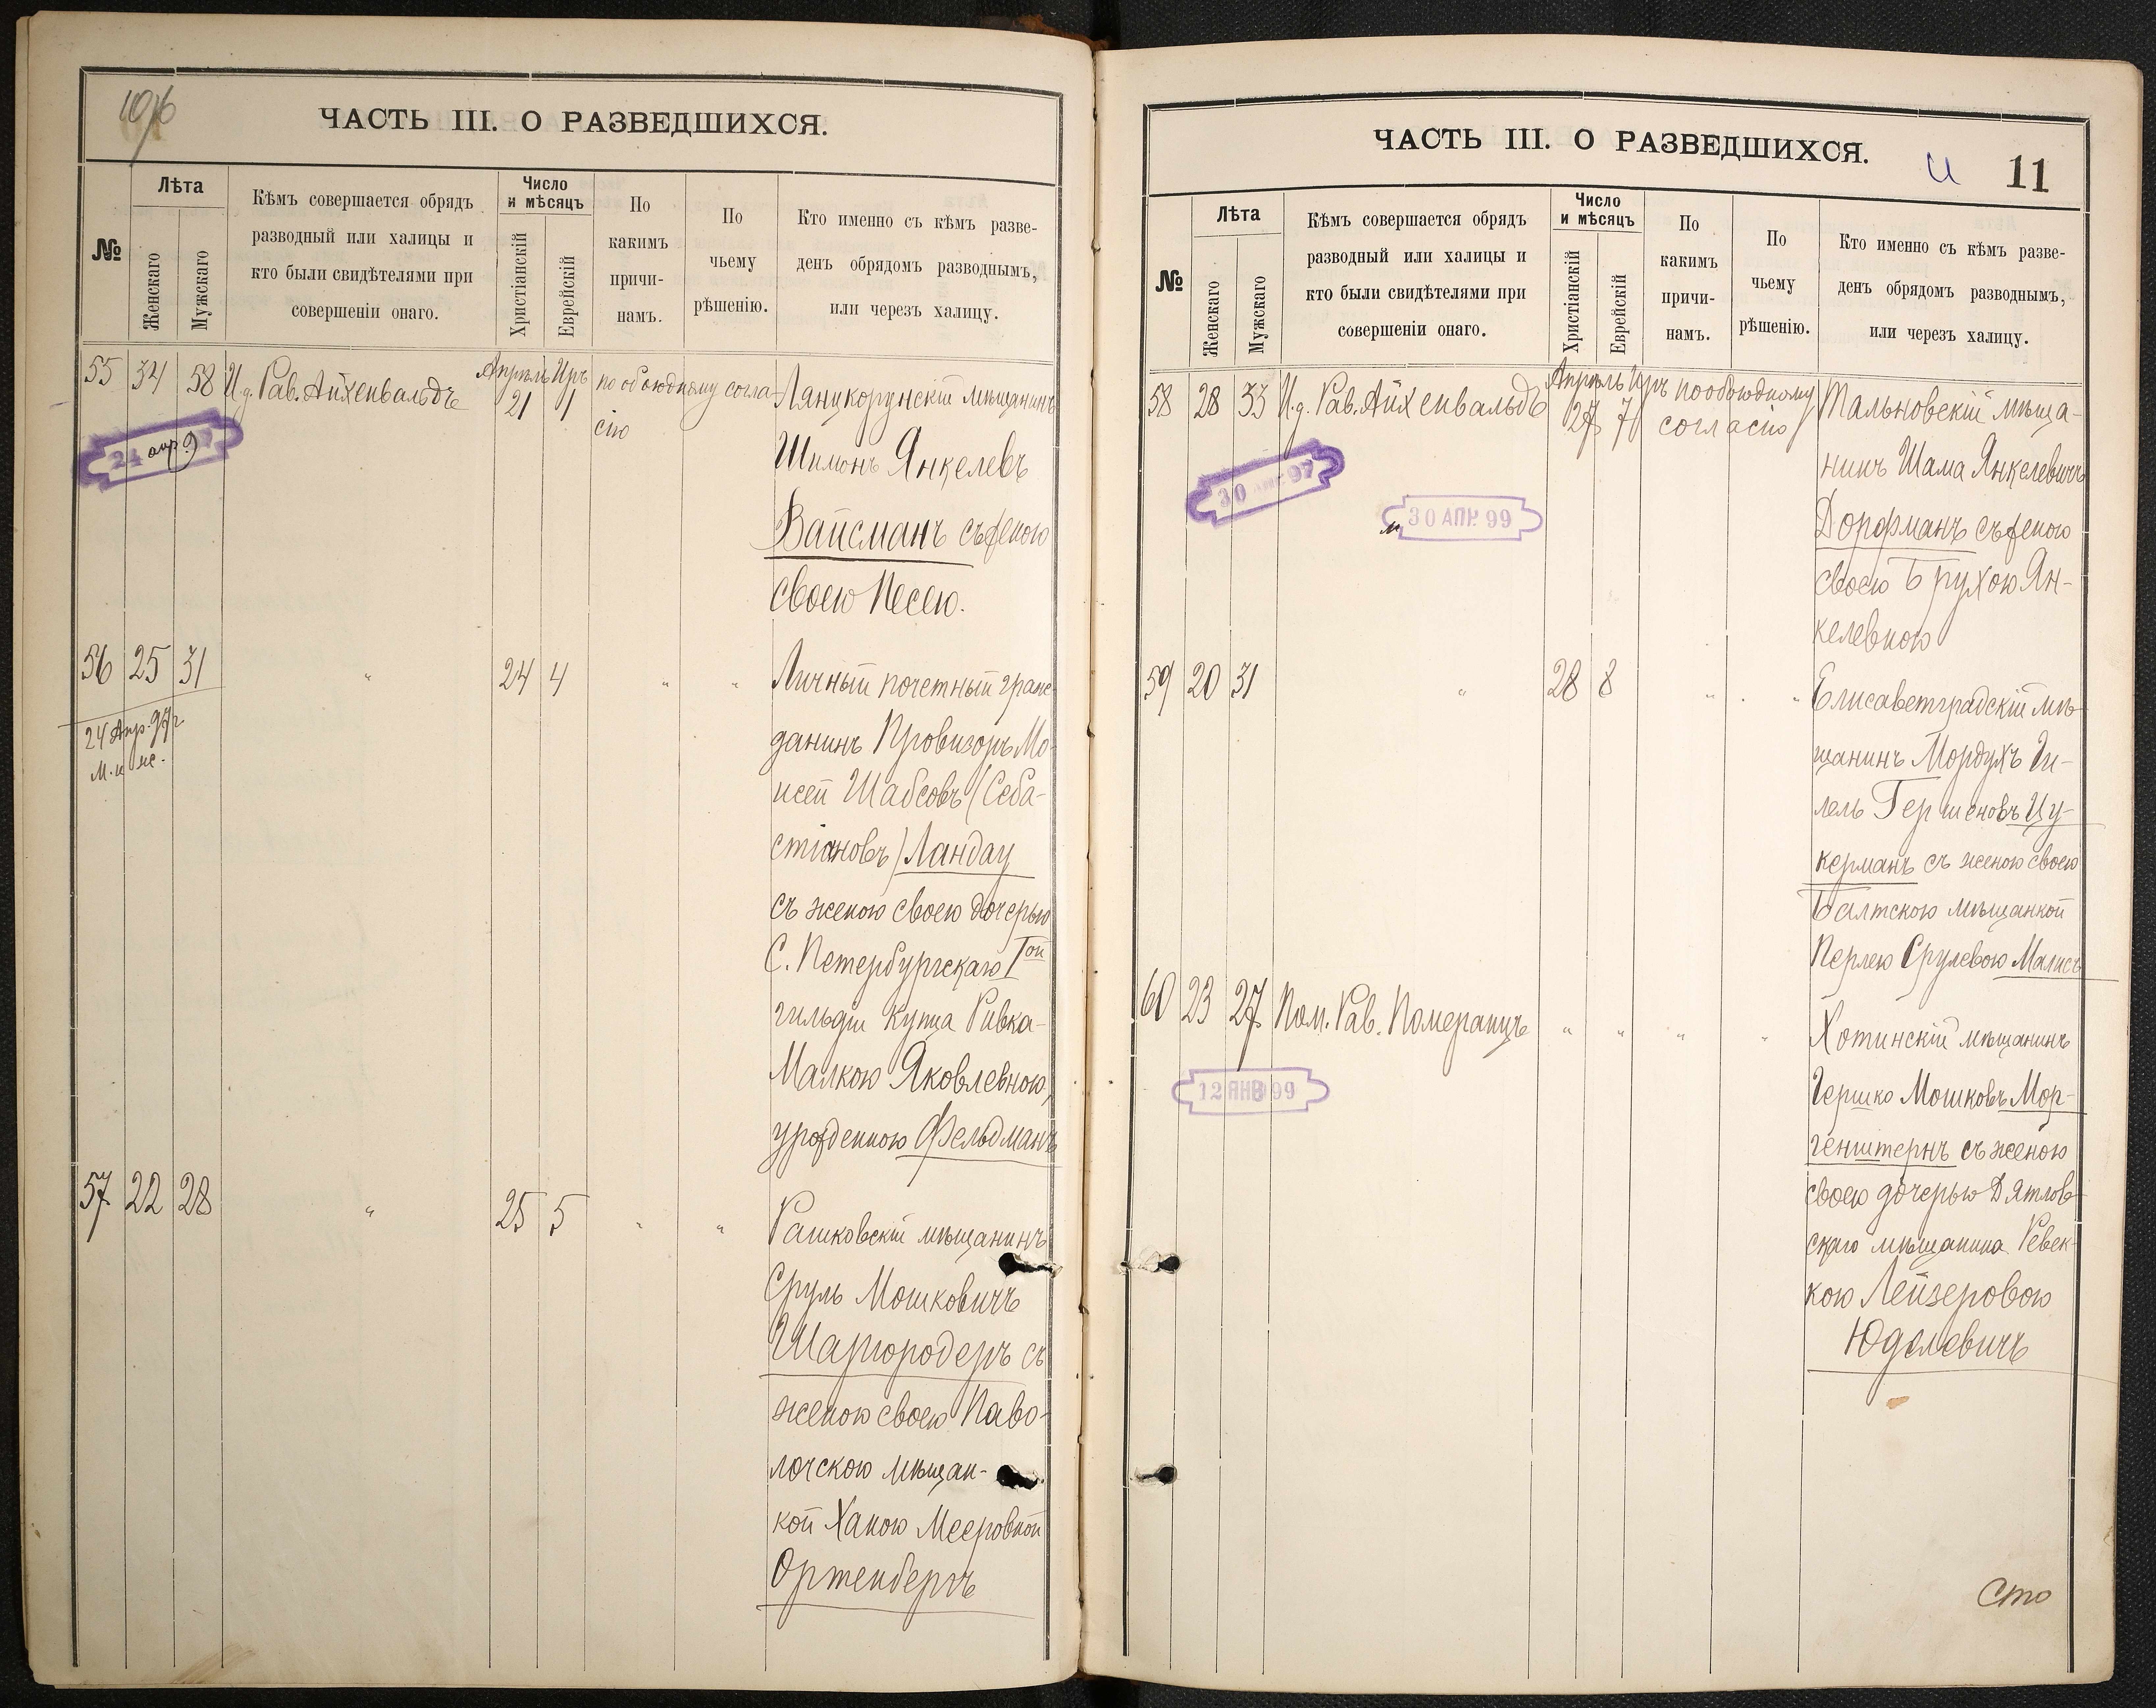 ЧАСТЬ III. О РАЗВЕДШИХСЯ.
№
Лѣта
Женскаго
Мужскаго
Кѣмъ совершается обрядъ
разводный или халицы и
кто были свидѣтелями при
совершеніи онаго.
Число
и мѣсяцъ
Христіанскій
Еврейскій
По
какимъ
причи-
намъ.
По
чьему
рѣшенію.
Кто именно съ кѣмъ разве-
денъ обрядомъ разводнымъ,
или черезъ халицу.
55 34 58 И.д. Рав. Айхенвальдъ Апрѣль 21 Иръ 1 по обоюдному согла-
сію
Лянцкорунскій мѣщанинъ
Шимонъ Янкелевъ
Вайсманъ съ женою
своею Песею.
24 апр 9
56 25 31 " 24 4 " "
Личный почетный граж-
данинъ Провизоръ Мо-
исей Шабсовъ (Себа-
стіановъ) Ландау
съ женою своею дочерью
С. Петербургскаго Iой
гильдіи купца Ривка-
Малкою Яковлевною,
урожденною Фельдманъ
24 Апр. 97 г
57 22 28 " 25 5 " "
Рашковскій мѣщанинъ
Сруль Мошковичъ
Шаргородеръ съ
женою своею Паво-
лочскою мѣщан-
кой Ханою Мееровной
Ортенбергъ
ЧАСТЬ III. О РАЗВЕДШИХСЯ.
11
№
Лѣта
Женскаго
Мужскаго
Кѣмъ совершается обрядъ
разводный или халицы и
кто были свидѣтелями при
совершеніи онаго.
Число
и мѣсяцъ
Христіанскій
Еврейскій
По
какимъ
причи-
намъ.
По
чьему
рѣшенію.
Кто именно съ кѣмъ разве-
денъ обрядомъ разводнымъ,
или черезъ халицу.
58 28 33 И.д. Рав. Айхенвальдъ Апрѣль 27 Иръ 7 по обоюдному
согласію
Тальновскій мѣща-
нинъ Шама Янкелевичъ
Дорфманъ съ женою
своею Брухою Ян-
келевною
30 АПР. 97
30 АПР. 99
59 20 31 " 28 8 " "
Елисаветградскій мѣ-
щанинъ Мордухъ Ги-
лель Гершоновъ Цу-
керманъ съ женою своею
Балтскою мѣщанкой
Перлею Срулевою Малисъ
60 23 27 Пом. Рав. Померанцъ " " " "
Хотинскій мѣщанинъ
Гершко Мошковъ Мор-
генштернъ съ женою
своею дочерью Дятлов-
скаго мѣщанина Ревек-
кою Лейзеровою
Юделевичъ
12 ЯНВ 99
Сто